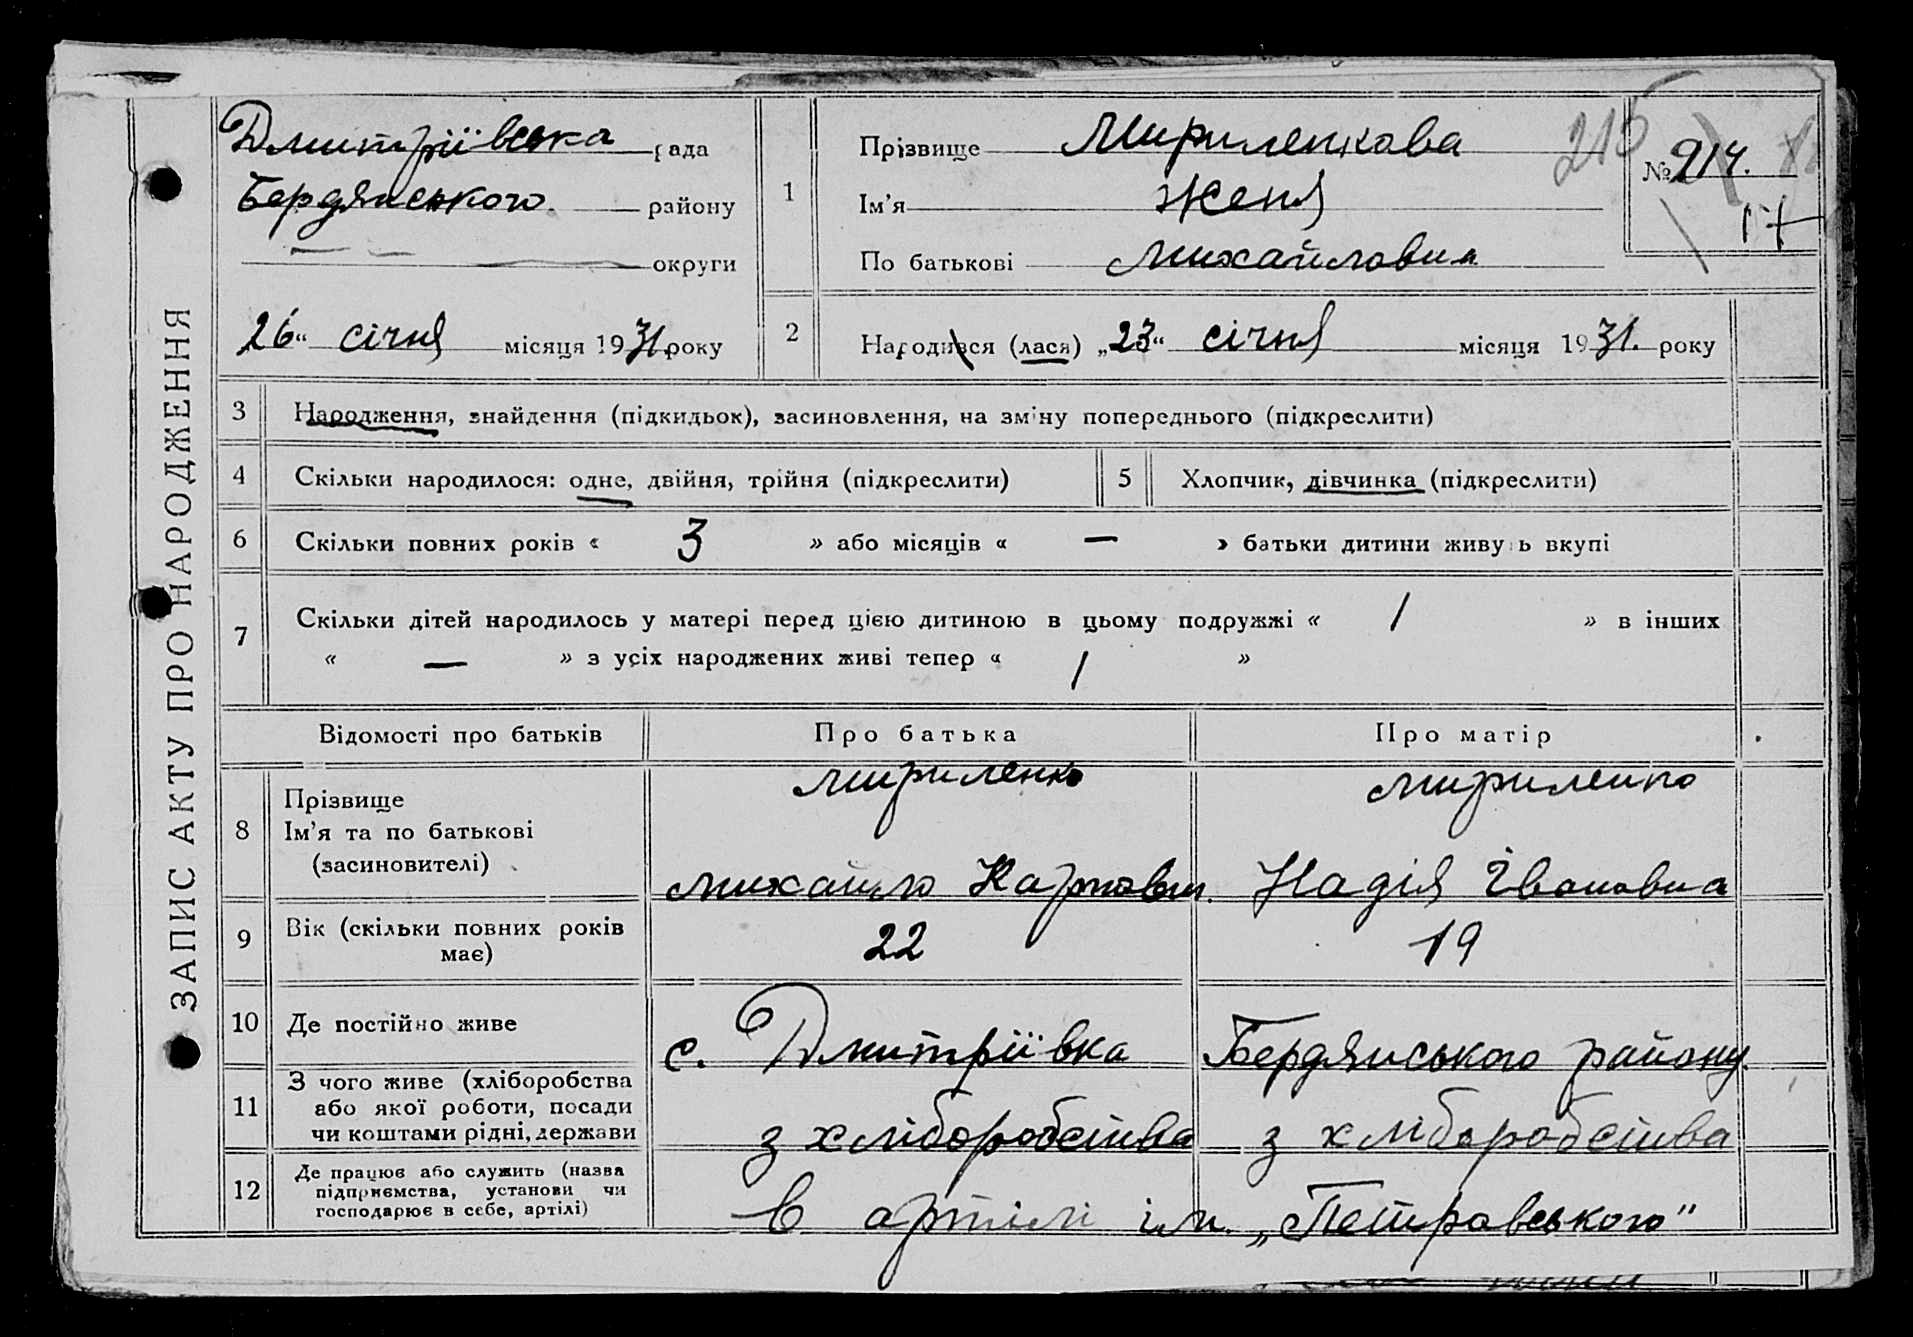 ЗАПИС АКТУ ПРО НАРОДЖЕННЯ
Дмитріївська рада
Бердянського району
округи
26 " січня місяця 1931. року
1
Прізвище Мириленкова
Ім'я Женя
По батькові Михайловна
215
№ 914.
17
2
Народився (лася) „23" січня місяця 1931. року
3 Народження, знайдення (підкидьок), засиновлення, на зміну попереднього (підкреслити)
4 Скільки народилося: одне, двійня, трійня (підкреслити) 5 Хлопчик, дівчинка (підкреслити)
6 Скільки повних років « 3 » або місяців « — » батьки дитини живуть вкупі
7 Скільки дітей народилось у матері перед цією дитиною в цьому подружжі « 1 » в інших
« — » з усіх народжених живі тепер « 1 »
Відомості про батьків Про батька Про матір
8 Прізвище
Ім'я та по батькові
(засиновителі)
Мириленко
Михайло Карпович.
Мириленко
Надія Івановна
9 Вік (скільки повних років
має)
22 19
10 Де постійно живе с. Дмитріївка Бердянського району.
11 З чого живе (хліборобства
або якої роботи, посади
чи коштами рідні, держави
з хліборобства з хліборобства
12 Де працює або служить (назва
підприємства, установи чи
господарює в себе, артілі)
в артілі ім. „Петравського"